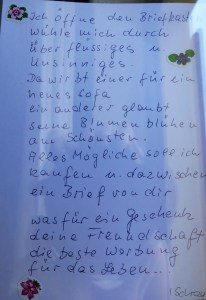 Ich öffne den Briefkast
wühle mich durch
überflüssiges u
Unsinniges.
Da wirbt einer für ein
neues Sofa
ein anderer glaubt
seine Blumen blühen
am Schönsten.
Alles Mögliche soll ich
kaufen u. dazwischen
ein Brief von dir
was für ein Geschenk
deine Freundschaft
die beste Werbung
für das Leben...